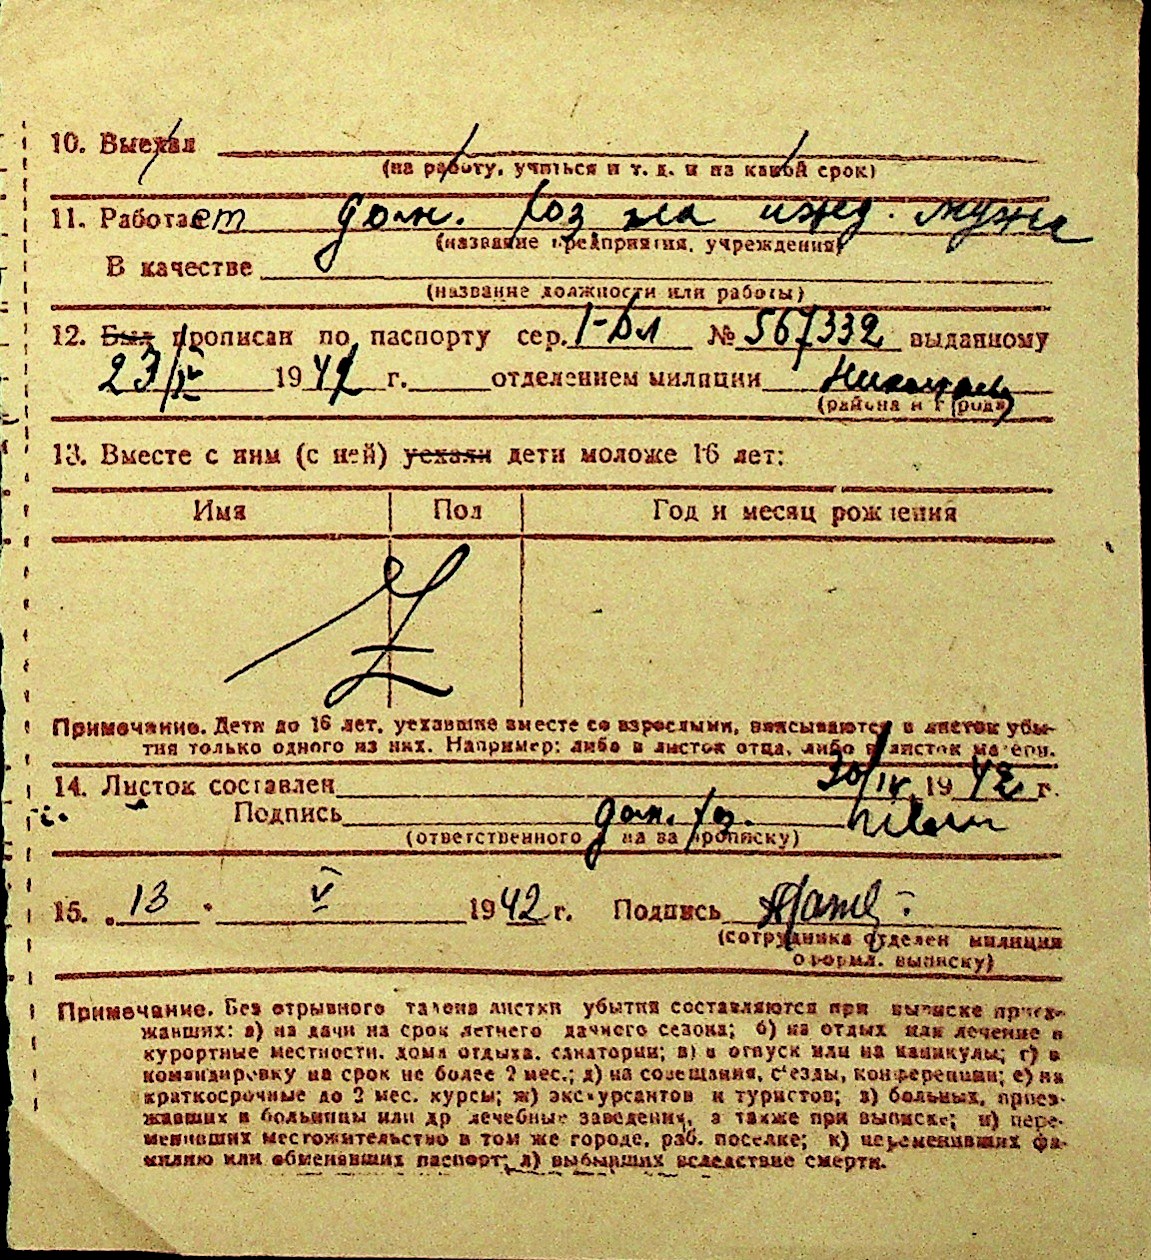 10. Выехал
(на работу, учиться и т. д. и на какой срок)
11. Работает дом. хоз на ижд. мужа
(название предприятия, учреждения)
В качестве
(название должности или работы)
12. Был прописан по паспорту сер. № 567332 выданному
23/IV 1942 г. отделением милиции
(района и города)
13. Вместе с ним (с ней) уехали дети моложе 16 лет:
Имя Пол Год и месяц рождения
Примечание. Дети до 16 лет, уехавшие вместе со взрослыми, вписываются в листок убы-
тия только одного из них. Например: либо в листок отца, либо в листок матери.
14. Листок составлен 30/IV 1942 г.
Подпись дом. хоз.
(ответственного на за прописку)
15. 13 V 1942 г. Подпись
(сотрудника отделен милиции
оформл. выписку)
Примечание. Без отрывного талона листки убытия составляются при выписке приез-
жавших: а) на дачи на срок летнего дачного сезона; б) на отдых или лечение в
курортные местности, дома отдыха, санатории; в) в отпуск или на каникулы; г) в
командировку на срок не более 2 мес.; д) на совещания, с'езды, конференции; е) на
краткосрочные до 2 мес. курсы; ж) экскурсантов и туристов; з) больных, приез-
жавших в больницы или др лечебные заведения, а также при выписке; и) пере-
менивших местожительство в том же городе, раб. поселке; к) переменивших фа-
милию или обменявших паспорт; л) выбывших вследствие смерти.